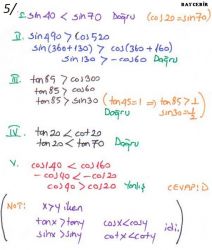 BAYCEBİR
5/
I. sin40 < sin70 Doğru (cos20=sin70)
II. sin490 > cos520
sin(360+130) > cos(360+160)
sin130 > -cos60 Doğru
III. tan85 > cos300
tan85 > cos60
tan85 > sin30 (tan45=1 ⇒ tan85>1
Doğru sin30=1/2)
IV. tan20 < cot20
tan20 < tan70 Doğru
V. cos140 < cos160
-cos40 < -cos20
cos40 > cos20 Yanlış CEVAP: D
(NOT: x>y iken
tanx > tany cosx<cosy
sinx > siny cotx<coty idi.)